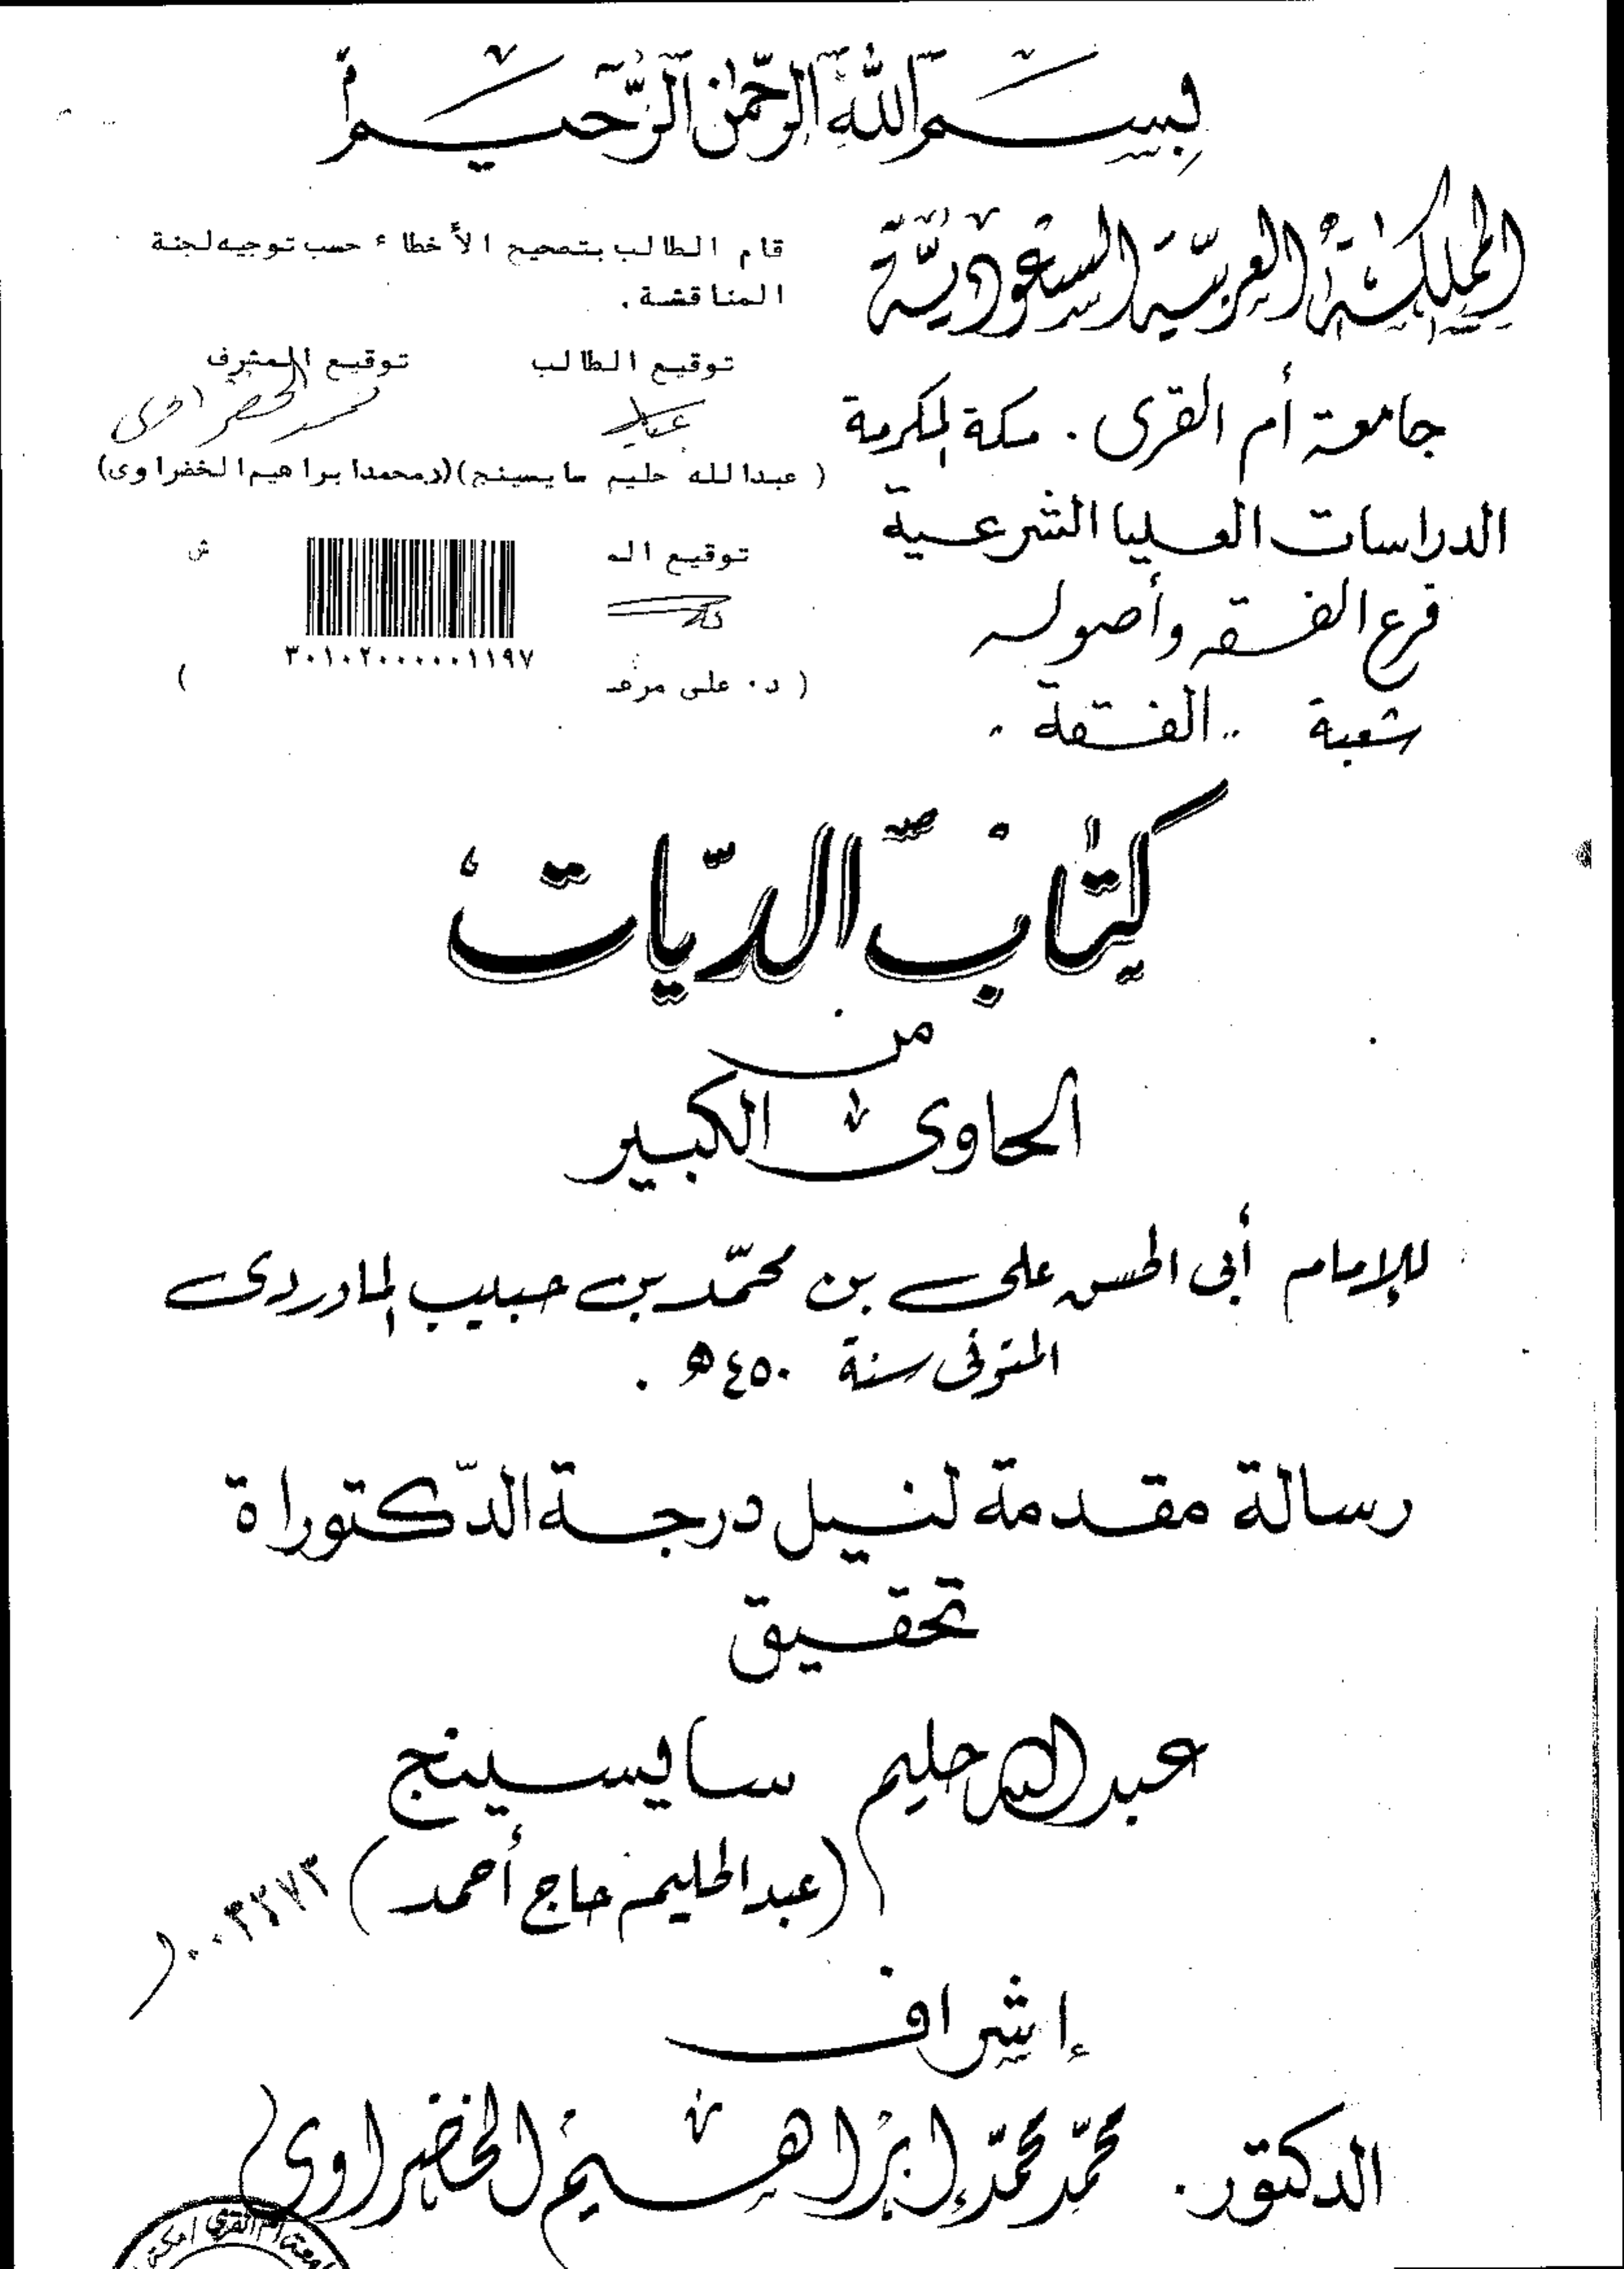 بسم الله الرحمن الرحيم
المملكة العربية السعودية
جامعة أم القرى . مكة المكرمة
الدراسات العليا الشرعية
فرع الفقه وأصوله
شعبة .. الفقه .
قام الطالب بتصحيح الأخطاء حسب توجيه لجنة
المناقشة .
توقيع الطالب توقيع المشرف
( عبدالله حليم سايسينج ) ( د. محمد ابراهيم الخضراوى )
توقيع الم ش
٣٠١٠٢٠٠٠٠٠٠١١٩٧
( د . على )
كتاب الديات
من
الحاوى الكبير
للإمام أبى الحسن على بن محمّد بن حبيب الماوردى
المتوفى سنة ٤٥٠ ه .
رسالة مقدمة لنيل درجة الدّكتوراة
تحقيق
عبد الله حليم سايسينج
(عبدالحليم حاج أحمد)
إشراف
الدكتور . محمّد محمّد إبراهيم الخضراوى